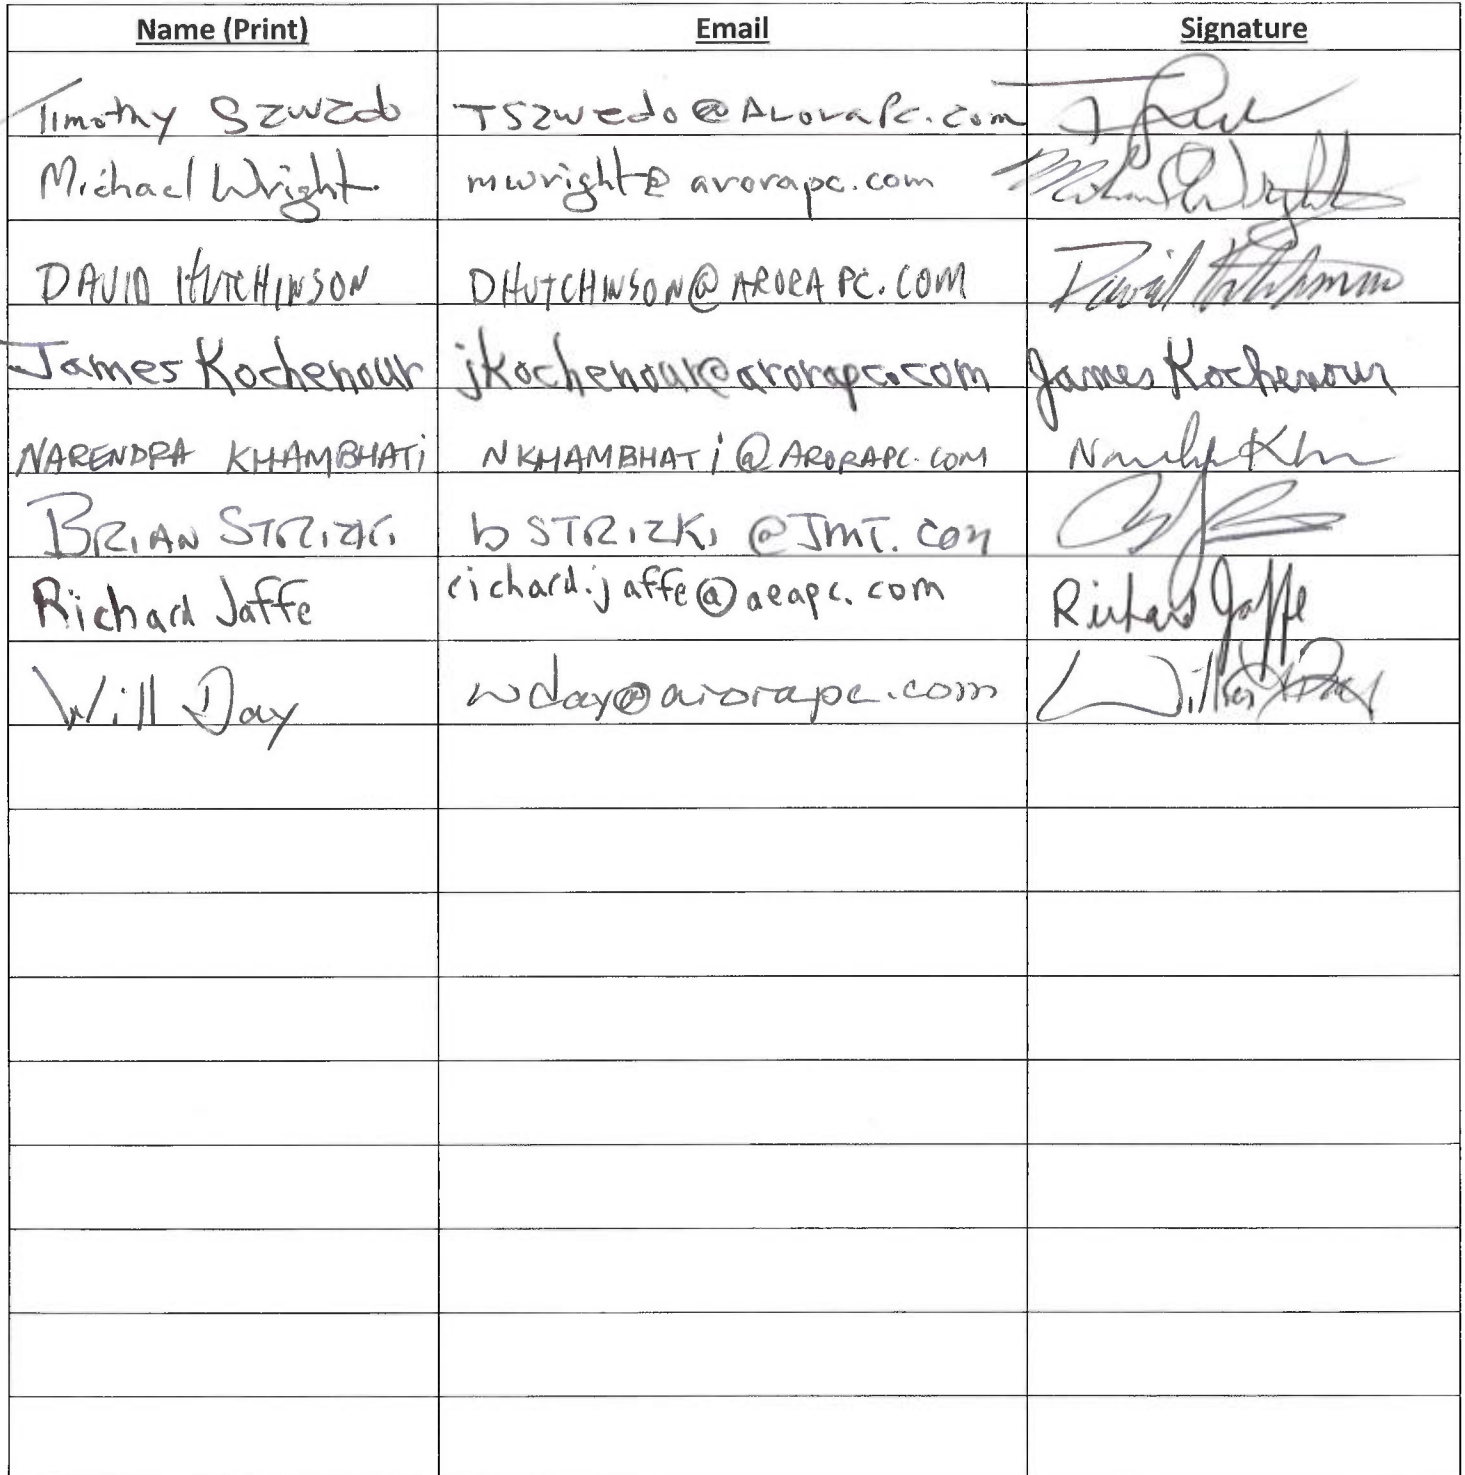 Name (Print) Email Signature
Timothy Szwedo TSzwedo@AroraPc.com
Michael Wright mwright@arorapc.com Michael Wright
DAVID HUTCHINSON DHUTCHINSON@ARORAPC.COM David Hutchinson
James Kochenour jkochenour@arorapc.com James Kochenour
NARENDRA KHAMBHATi NKHAMBHATi@ARORAPC.COM
BRIAN STRIZKI bSTRIZKI@JMT.COM
Richard Jaffe richard.jaffe@aeapc.com Richard Jaffe
Will Day wday@arorapc.com